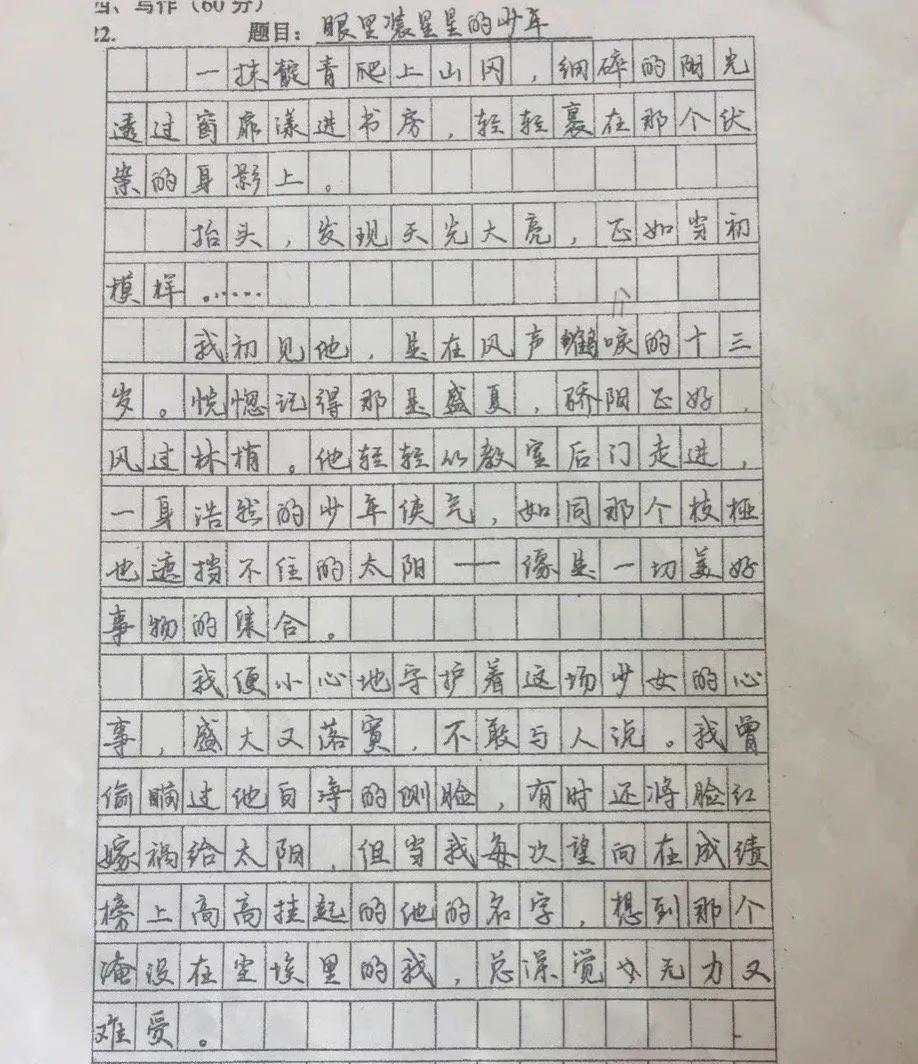 四、写作（60分）
22. 题目：眼里装星星的少年
一抹靛青爬上山冈，细碎的阳光
透过窗扉漾进书房，轻轻裹在那个伏
案的身影上。
抬头，发现天光大亮，正如当初
模样。……
我初见他，是在风声鹤唳的十三
岁。恍惚记得那是盛夏，骄阳正好，
风过林梢。他轻轻从教室后门走进，
一身浩然的少年侠气，如同那个枝桠
也遮挡不住的太阳——像是一切美好
事物的集合。
我便小心地守护着这场少女的心
事，盛大又落寞，不敢与人说。我曾
偷瞄过他白净的侧脸，有时还将脸红
嫁祸给太阳，但当我每次望向在成绩
榜上高高挂起的他的名字，想到那个
淹没在尘埃里的我，总深觉无力又
难受。